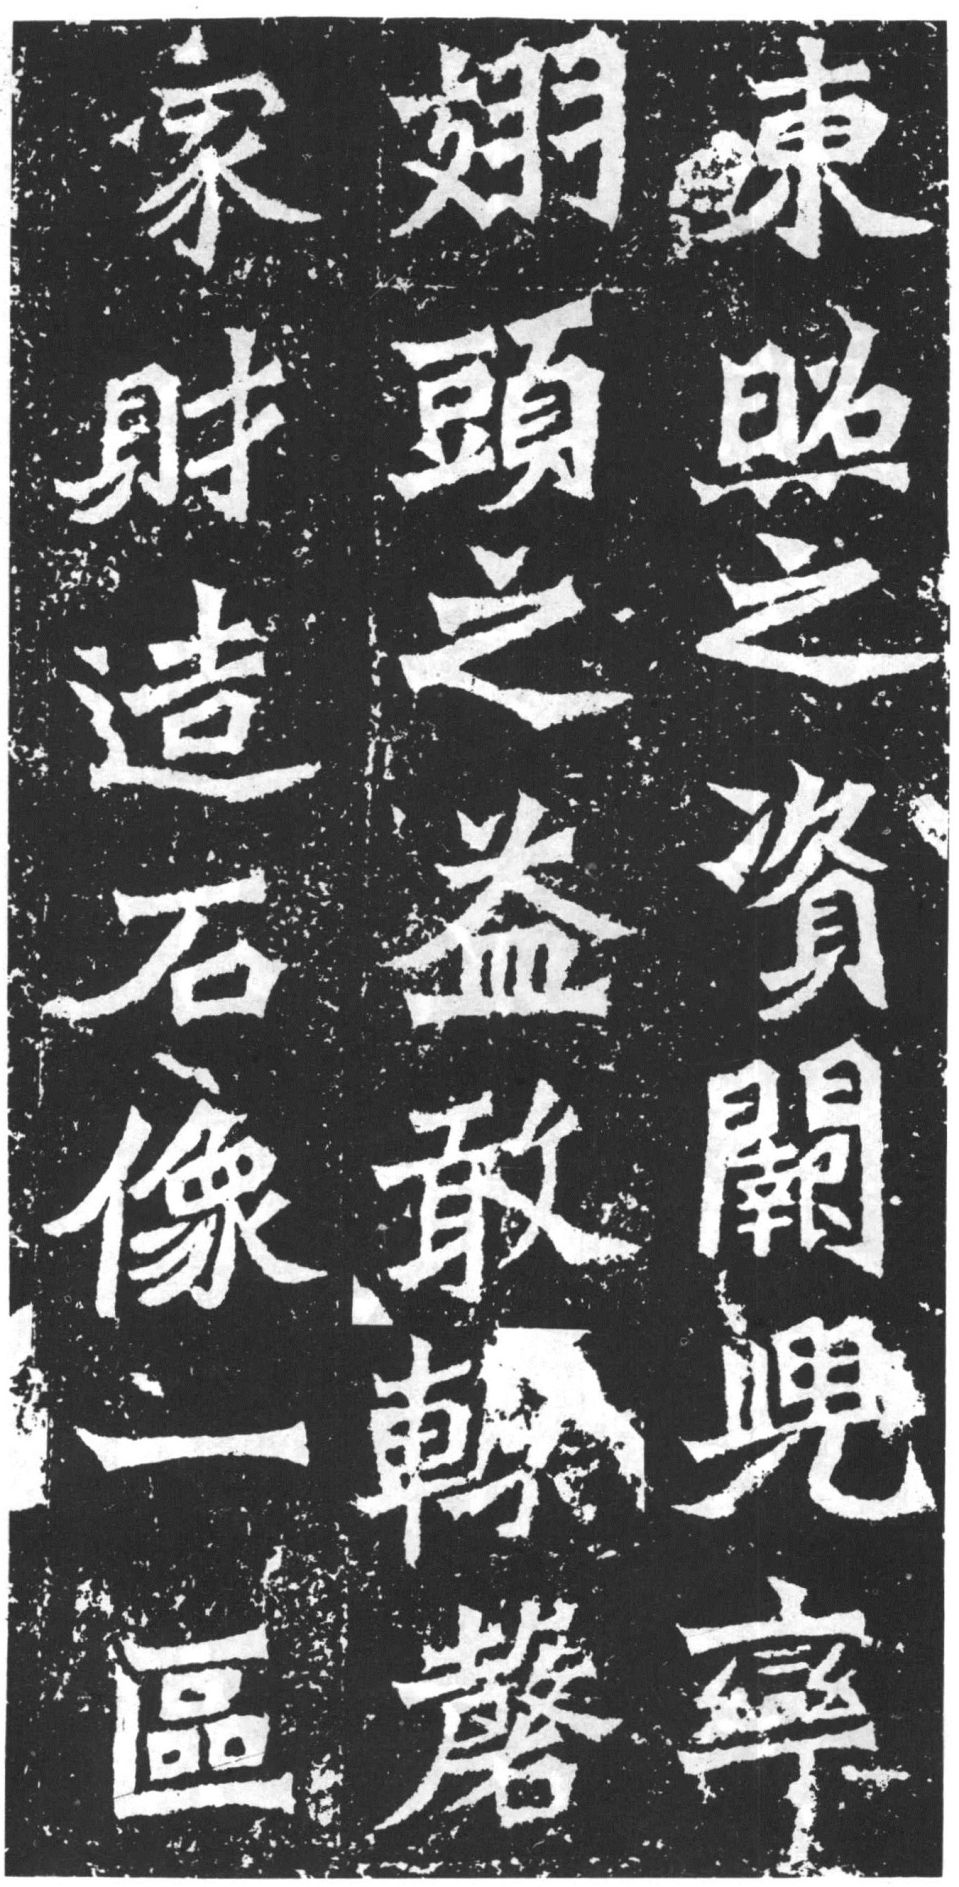 東照之資闕兜率
翅頭之益敢輒罄
家財造石像一區